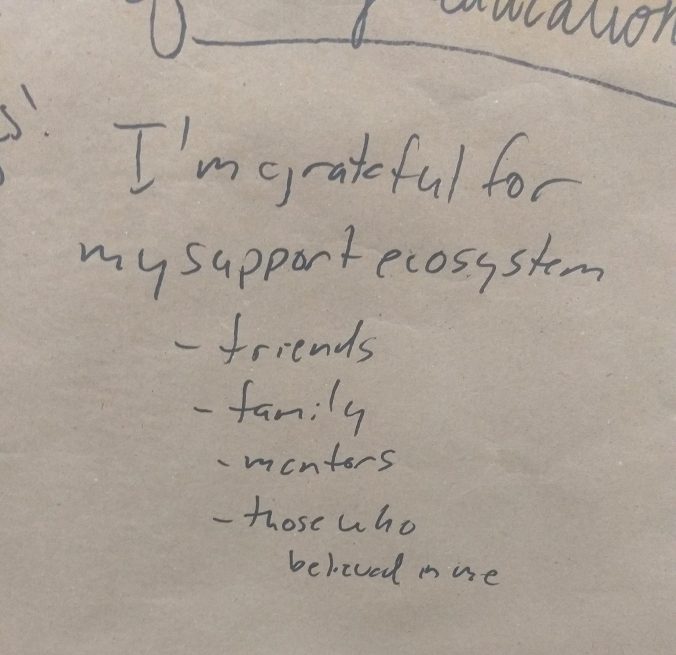 education
I'm grateful for
my support ecosystem
- friends
- family
- mentors
- those who
believed in me